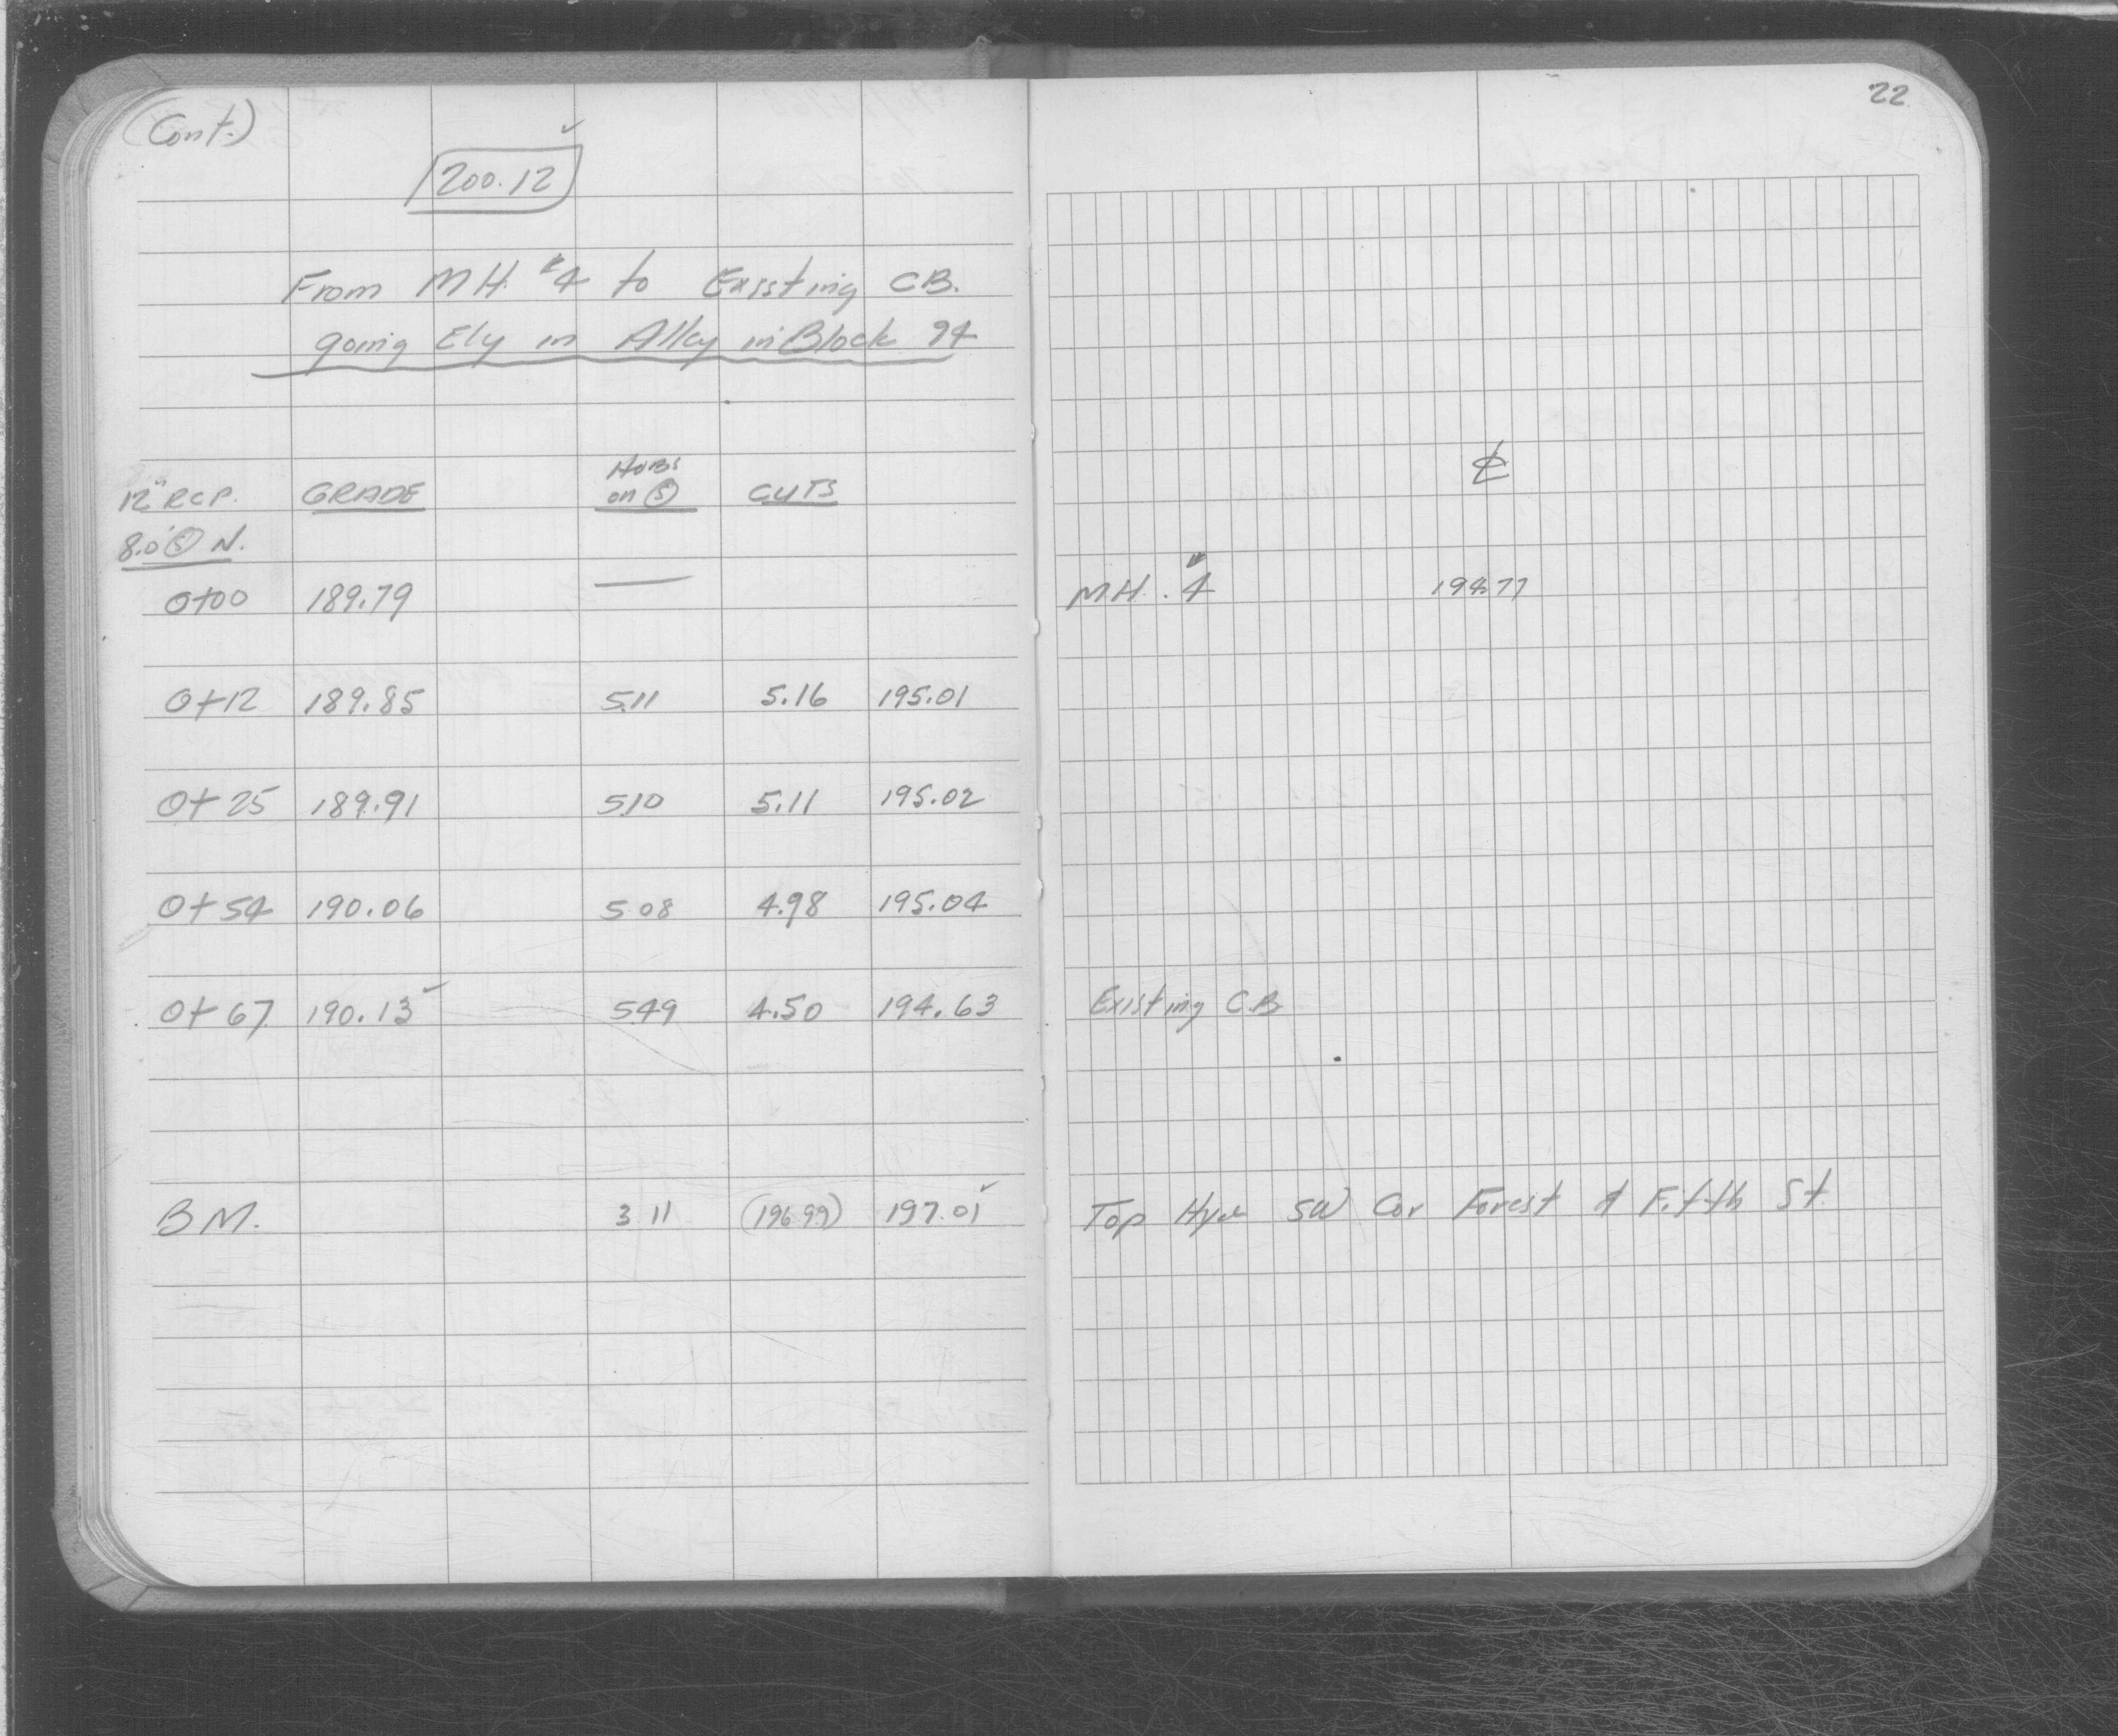 22
(Cont.)
200.12 ✓
From M.H. #4 to Existing C.B.
going Ely in Alley in Block 94
Hubs
12" R.C.P. GRADE on Ⓢ CUTS ℄
8.0' Ⓢ N.
0+00 189.79 — M.H. #4 194.77
0+12 189.85 5.11 5.16 195.01
0+25 189.91 5.10 5.11 195.02
0+54 190.06 5.08 4.98 195.04
0+67 190.13 ✓ 5.49 4.50 194.63 Existing C.B.
B.M. 3.11 (196.99) 197.01 ✓ Top Hyd SW Cor Forest & Fifth St.